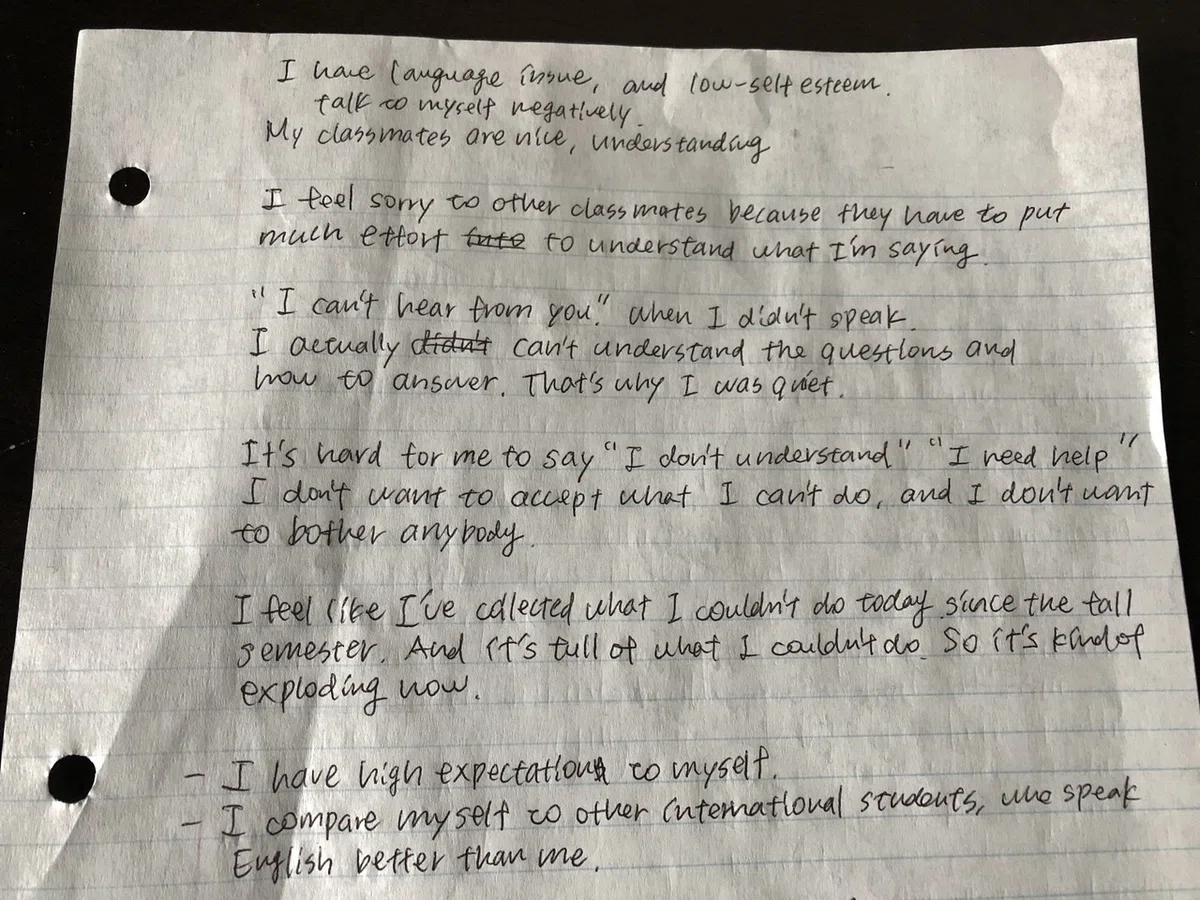 I have language issue, and low-self esteem.
talk to myself negatively.
My classmates are nice, understanding
I feel sorry to other classmates because they have to put
much effort into to understand what I'm saying.
"I can't hear from you." when I didn't speak.
I actually didn't can't understand the questions and
how to answer. That's why I was quiet.
It's hard for me to say "I don't understand" "I need help"
I don't want to accept what I can't do, and I don't want
to bother anybody.
I feel like I've collected what I couldn't do today since the fall
semester. And it's full of what I couldn't do. So it's kind of
exploding now.
- I have high expectation to myself.
- I compare myself to other international students, who speak
English better than me.